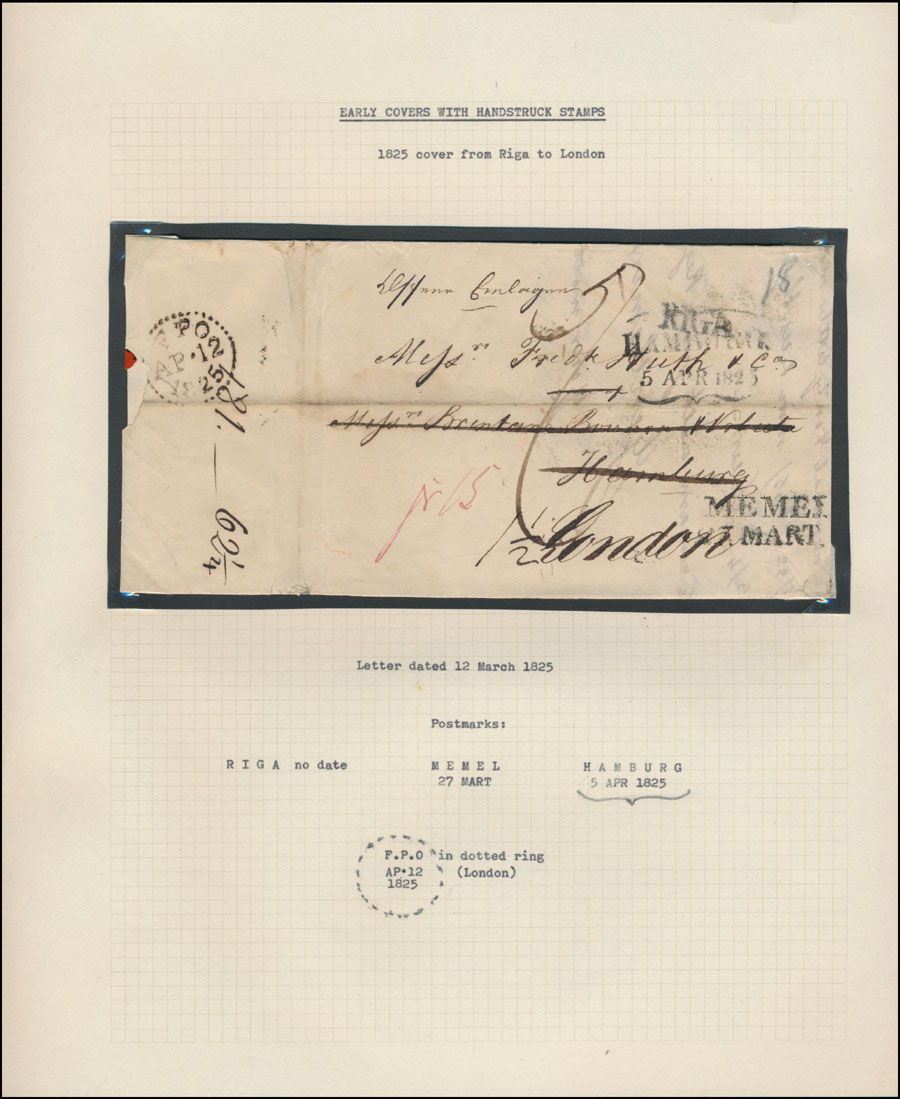 EARLY COVERS WITH HANDSTRUCK STAMPS
1825 cover from Riga to London
18
RIGA
HAMBURG
5 APR 1825
FPO
AP·12
1825
Messrs Fredk Huth & Co
Messrs
Hamburg
MEMEL
27 MART
1/2 London
181.
62/4
Letter dated 12 March 1825
Postmarks:
R I G A no date
M E M E L
27 MART
H A M B U R G
5 APR 1825
F.P.O in dotted ring
AP·12 (London)
1825